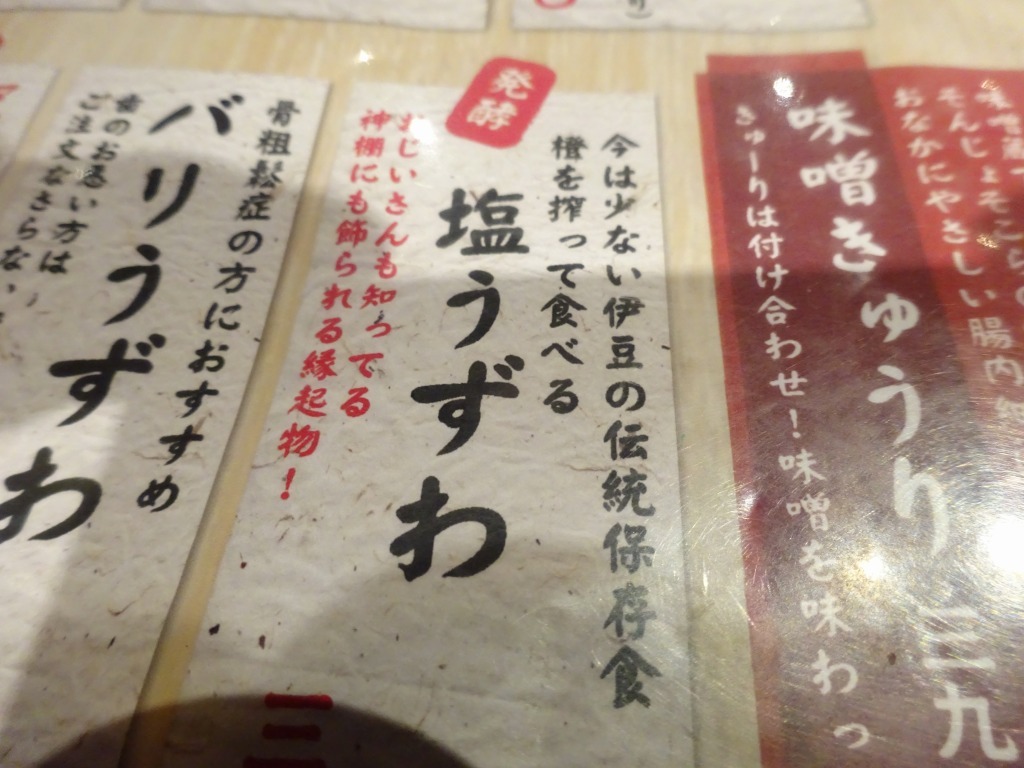 味噌
そんじょそこらの
おなかにやさしい腸内細
味噌きゅうり 三九
きゅーりは付け合わせ！味噌を味わっ
発酵
今は少ない伊豆の伝統保存食
橙を搾って食べる
塩うずわ
おじいさんも知ってる
神棚にも飾られる縁起物！
骨粗鬆症の方におすすめ
バリうずわ
歯のお悪い方は
ご注文なさらない